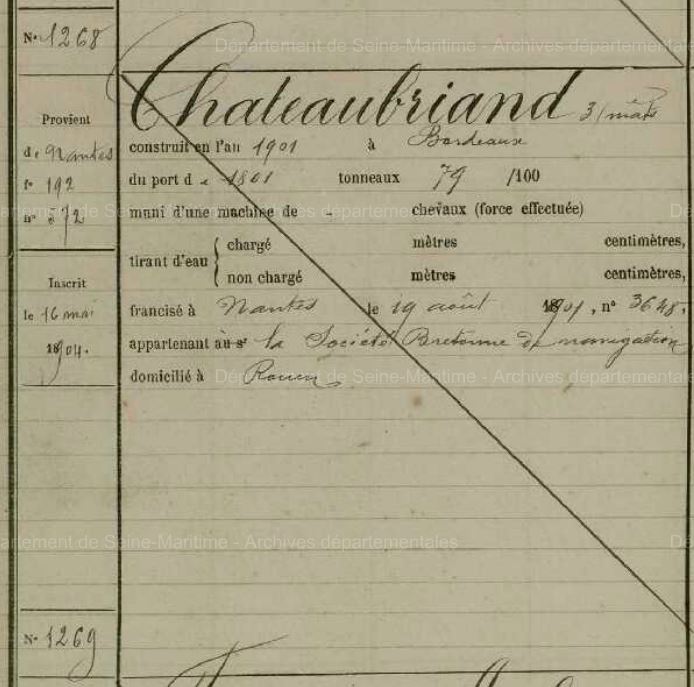 Nº 1268
Département de Seine-Maritime - Archives départementales
Chateaubriand 3/mâts
Provient
de Nantes
fº 192
nº 572
construit en l'an 1901 à Bordeaux
du port de 1801 tonneaux 79 /100
muni d'une machine de - chevaux (force effectuée)
tirant d'eau { chargé mètres centimètres,
non chargé mètres centimètres,
Inscrit
le 16 mai
1904.
francisé à Nantes le 19 août 1901, nº 3648.
appartenant au sr la Société Bretonne de navigation
domicilié à Rouen
Département de Seine-Maritime - Archives départementales
Nº 1269